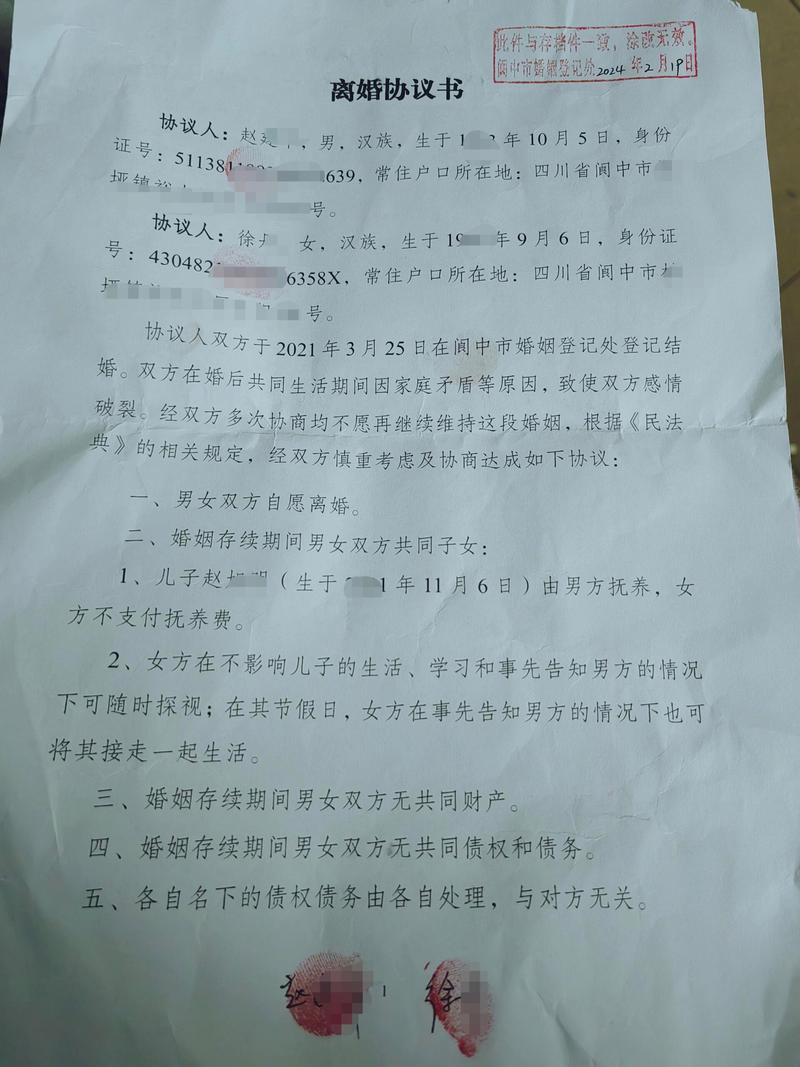 此件与存档件一致，涂改无效。
阆中市婚姻登记处2024年2月19日
离婚协议书
协议人：赵 ，男，汉族，生于1 年10月5日，身份
证号：511381 639，常住户口所在地：四川省阆中市
垭镇 号。
协议人：徐 女，汉族，生于19 年9月6日，身份证
号：430482 6358X，常住户口所在地：四川省阆中市
垭镇 号。
协议人双方于2021年3月25日在阆中市婚姻登记处登记结
婚。双方在婚后共同生活期间因家庭矛盾等原因，致使双方感情
破裂。经双方多次协商均不愿再继续维持这段婚姻，根据《民法
典》的相关规定，经双方慎重考虑及协商达成如下协议：
一、男女双方自愿离婚。
二、婚姻存续期间男女双方共同子女：
1、儿子赵 （生于 1年11月6日）由男方抚养，女
方不支付抚养费。
2、女方在不影响儿子的生活、学习和事先告知男方的情况
下可随时探视；在其节假日，女方在事先告知男方的情况下也可
将其接走一起生活。
三、婚姻存续期间男女双方无共同财产。
四、婚姻存续期间男女双方无共同债权和债务。
五、各自名下的债权债务由各自处理，与对方无关。
赵 徐